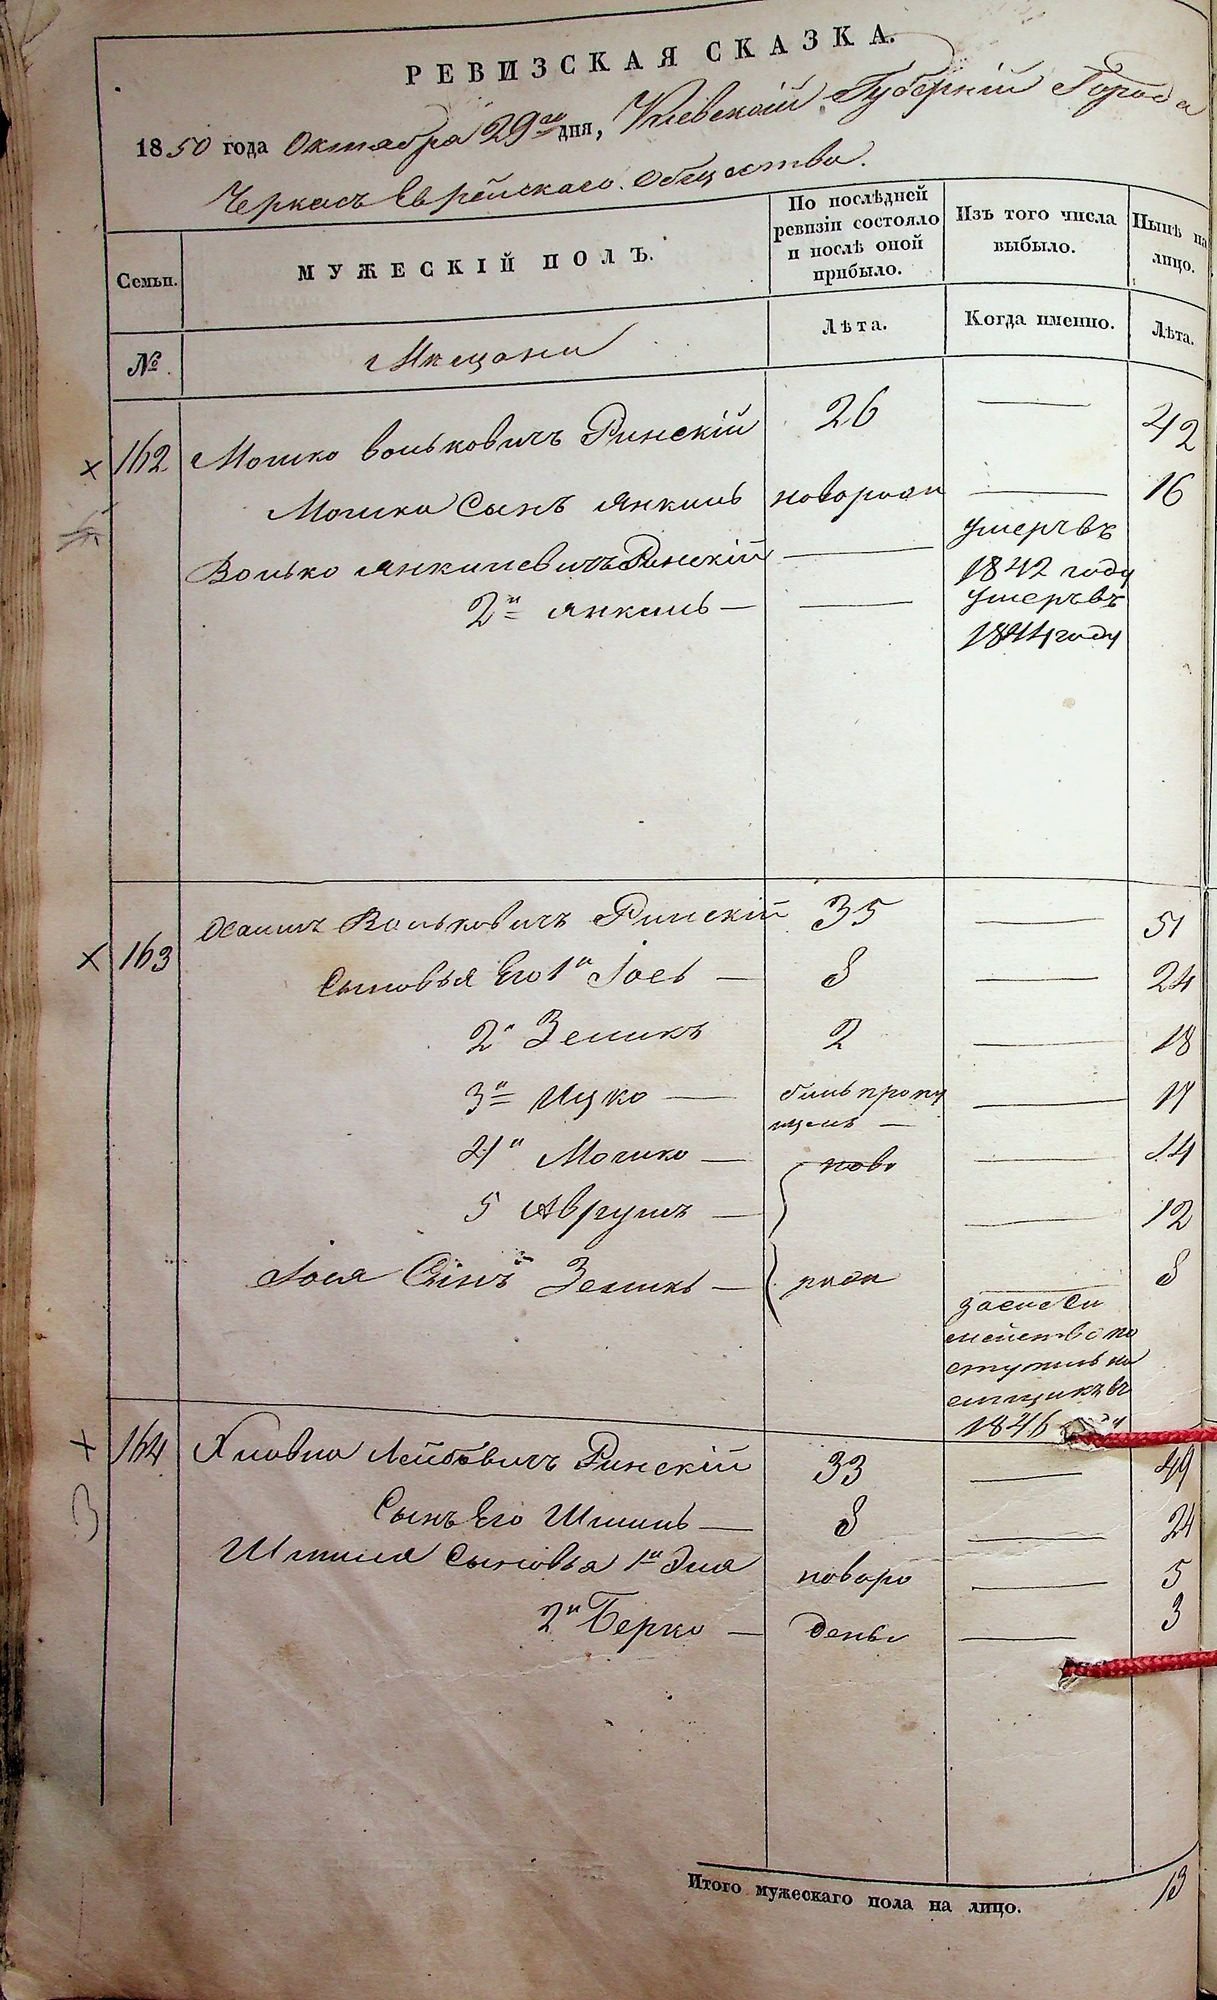 РЕВИЗСКАЯ СКАЗКА.
1850 года Октября 29го дня, Киевской Губерніи Города
Черкасъ Еврейскаго Общества.
Семьи.
МУЖЕСКІЙ ПОЛЪ.
По послѣдней ревизіи состояло и послѣ оной прибыло.
Изъ того числа выбыло.
Нынѣ на лицо.
№
Мещани
Лѣта.
Когда именно.
Лѣта.
162 Мошко Волькович Ринскій 26 — 42
Мошки Сынъ Янкель новорожд — 16
Волько Янкилевичъ Ринскій — умеръ въ 1842 году
2й Янкиль — — умеръ въ 1844 году
163 Волькович Ринскій 35 — 51
Сыновья Его 1й Іось — 8 — 24
2й Зеликъ 2 — 18
3й Ицко — былъ пропущенъ — — 17
4й Мошко — ново — 14
5 Аврумъ — — 12
Іося Сынъ Зеликъ — рожд — 8
за сие семейство поступилъ
1846
164 Лейбовичъ Ринскій 33 — 49
Сынъ Его Шмиль — 8 — 24
Шмиля Сыновья 1й Эля новоро — 5
2й Берко — дены — 3
Итого мужескаго пола на лицо. 13